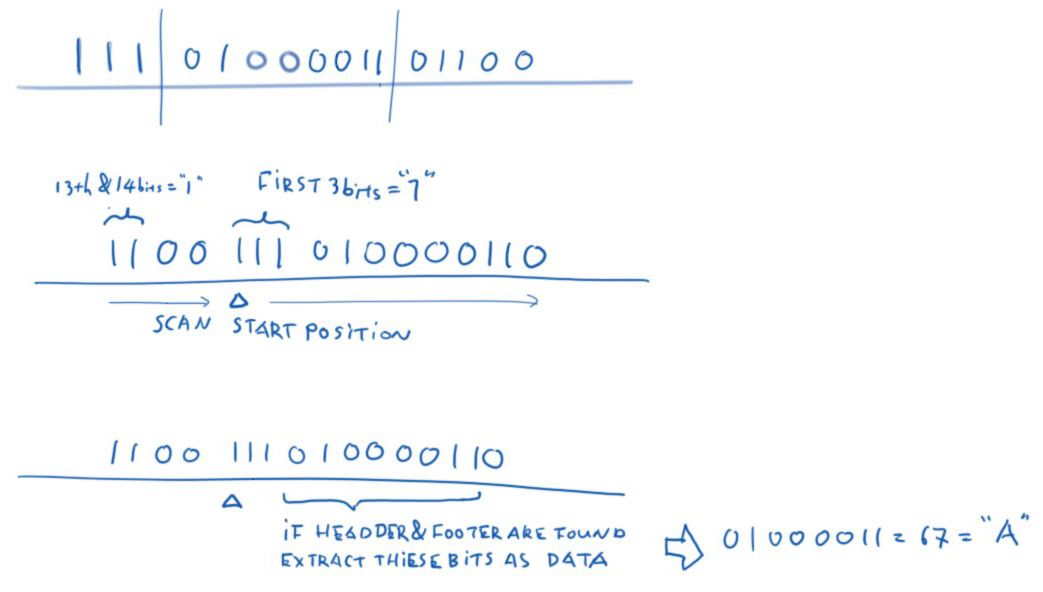 111|01000011|01100
13th & 14bits="1" FiRST 3bits="7"
1100 111 010000110
SCAN START POSiTiON
1100 111010000110
iF HEADDER & FOOTER ARE FOUND
EXTRACT THiESE BiTS AS DATA
01000011 = 67 = "A"